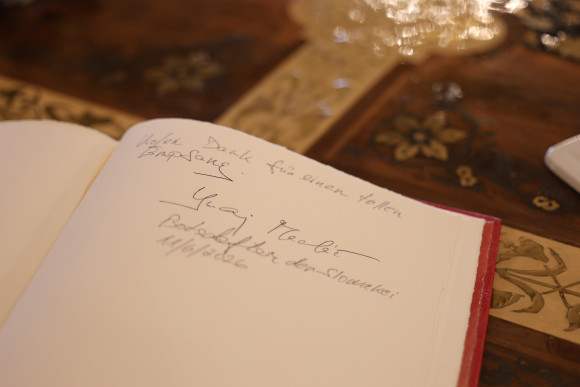 Vielen Dank für einen tollen
Empfang.
Botschafter der Slowakei
11/6/2026